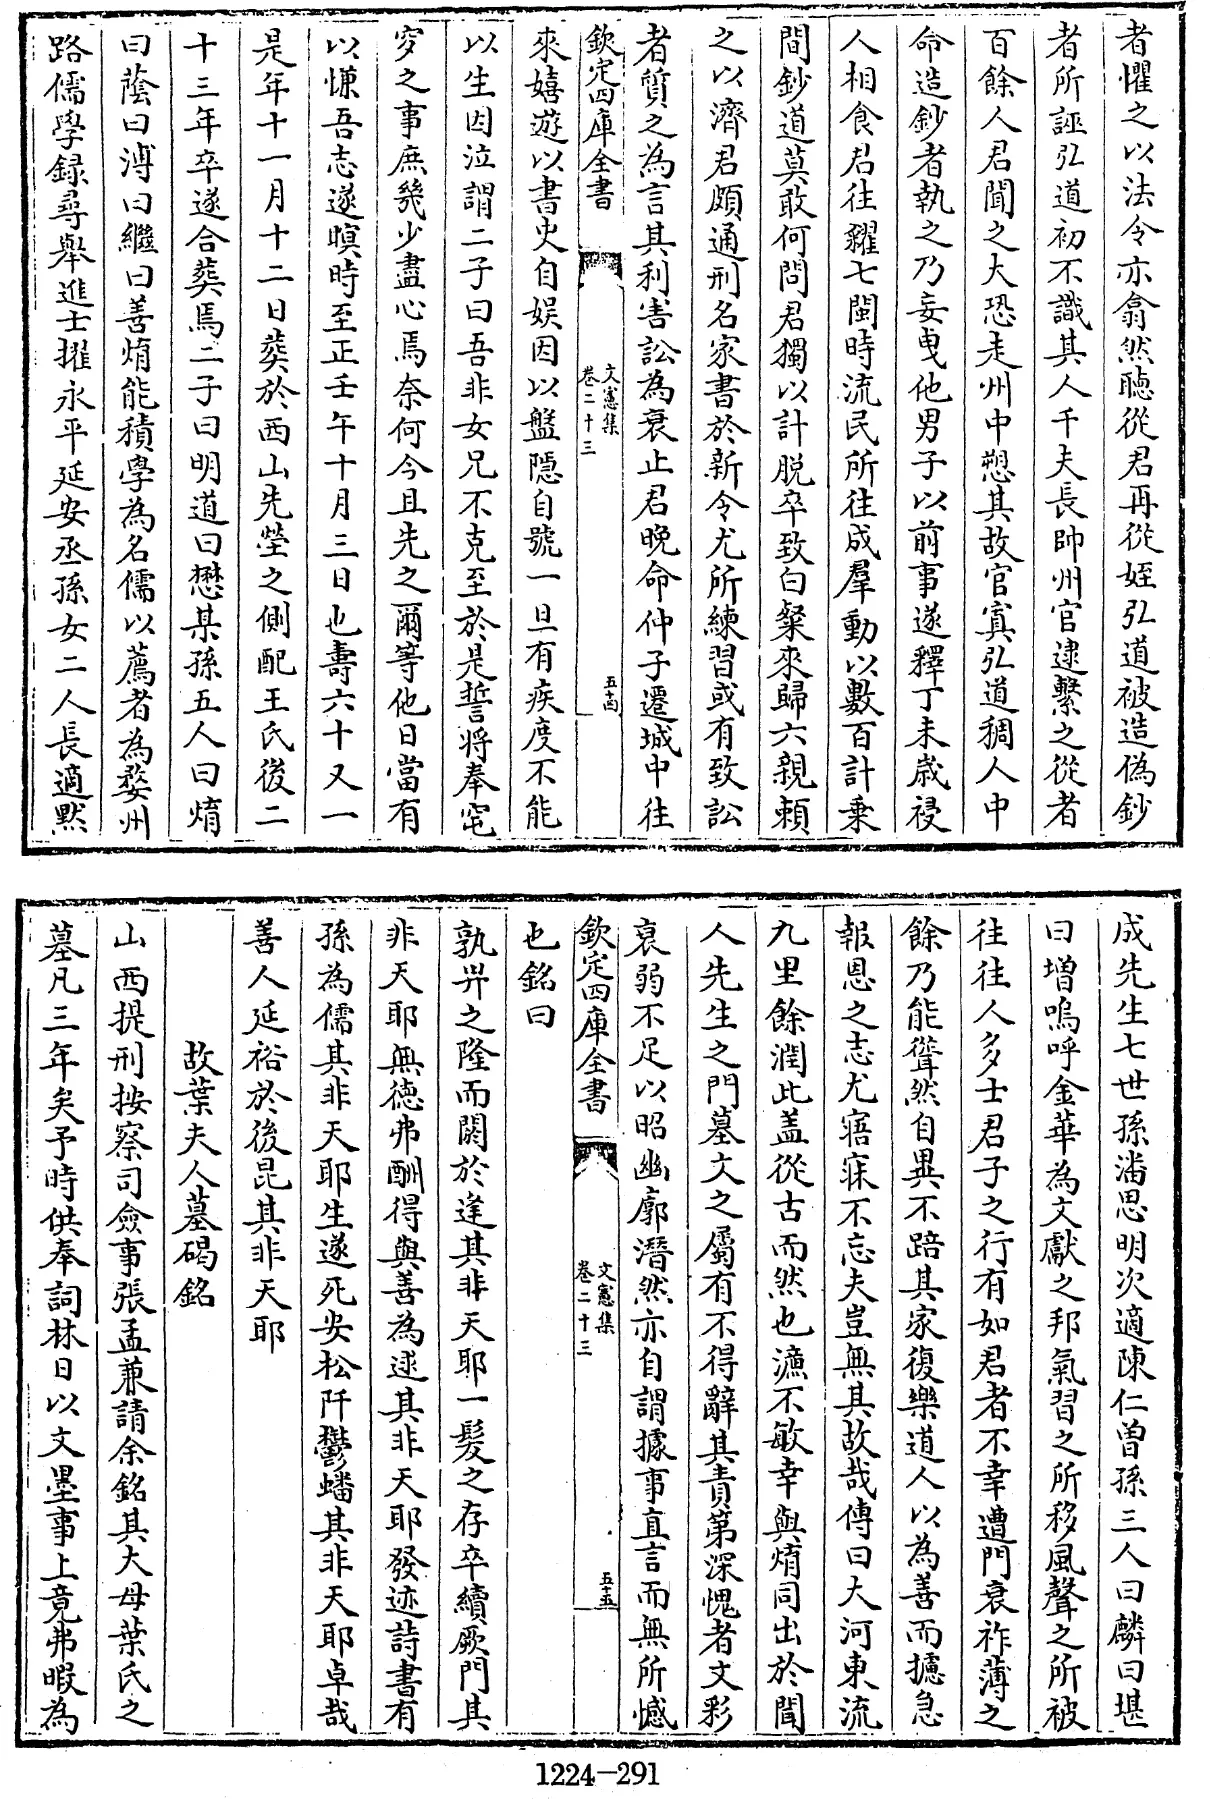 者懼之以法令亦翕然聴從君再從姪弘道被造偽鈔
者所誣弘道初不識其人千夫長帥州官逮繫之從者
百餘人君聞之大恐走州中愬其故官寘弘道稠人中
命造鈔者執之乃妄曳他男子以前事遂釋丁未歳祲
人相食君往糴七閩時流民所往成羣動以數百計乗
間鈔道莫敢何問君獨以計脱卒致白粲來歸六親頼
之以濟君頗通刑名家書於新令尤所練習或有致訟
者質之為言其利害訟為衰止君晚命仲子遷城中往
欽定四庫全書
文憲集
卷二十三
五十四
來嬉遊以書史自娱因以盤隠自號一旦有疾度不能
以生因泣謂二子曰吾非女兄不克至於是誓将奉窀
穸之事庶幾少盡心焉奈何今且先之爾等他日當有
以慊吾志遂瞑時至正壬午十月三日也壽六十又一
是年十一月十二日葬於西山先塋之側配王氏後二
十三年卒遂合葬焉二子曰明道曰懋某孫五人曰焴
曰蔭曰溥曰繼曰善焴能積學為名儒以薦者為婺州
路儒學録尋舉進士擢永平延安丞孫女二人長適黙
成先生七世孫潘思明次適陳仁曽孫三人曰麟曰堪
曰増嗚呼金華為文獻之邦氣習之所移風聲之所被
往往人多士君子之行有如君者不幸遭門衰祚薄之
餘乃能聳然自異不踣其家復樂道人以為善而攄急
報恩之志尤寤寐不忘夫豈無其故哉傳曰大河東流
九里餘潤此盖從古而然也濂不敏幸與焴同出於聞
人先生之門墓文之屬有不得辭其責第深愧者文彩
衰弱不足以昭幽廓潛然亦自謂據事直言而無所憾
欽定四庫全書
文憲集
卷二十三
五十五
也銘曰
孰畀之隆而閼於逢其非天耶一髪之存卒續厥門其
非天耶無德弗酬得與善為逑其非天耶發迹詩書有
孫為儒其非天耶生遂死安松阡鬱蟠其非天耶卓哉
善人延裕於後昆其非天耶
故葉夫人墓碣銘
山西提刑按察司僉事張孟兼請余銘其大母葉氏之
墓凡三年矣予時供奉詞林日以文墨事上竟弗暇為
1224-291